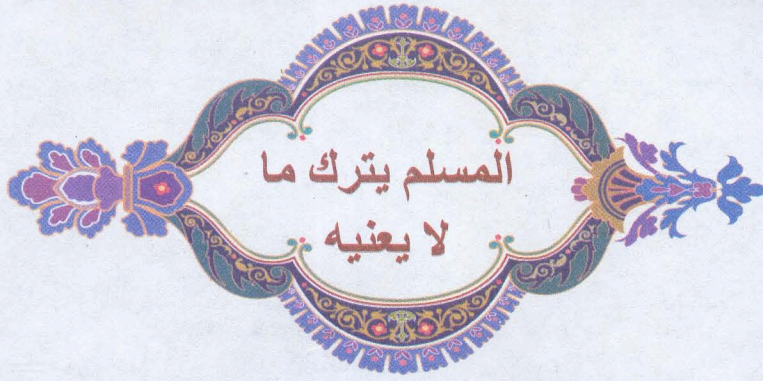 المسلم يترك ما
لا يعنيه